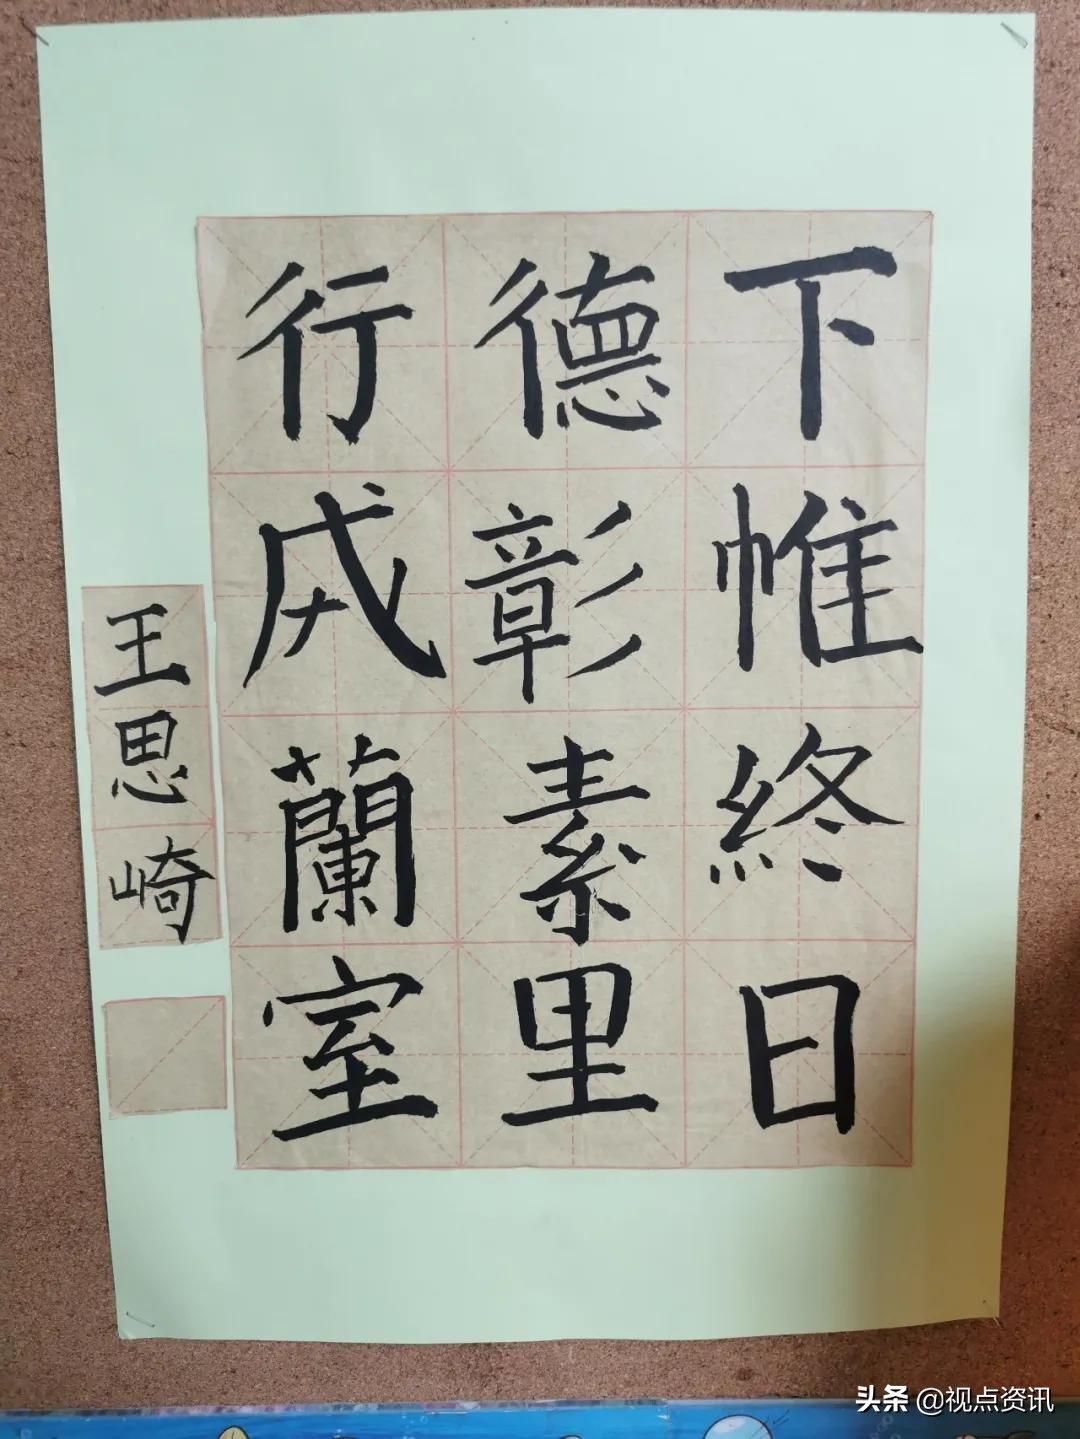 下帷終日
德彰素里
行成蘭室
王思崎
头条 @视点资讯